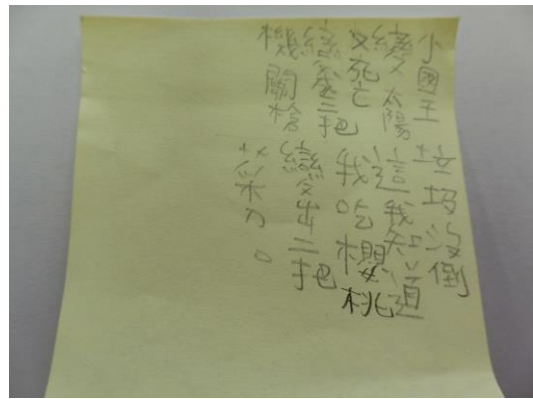 小國王 垃圾沒倒
太陽 這我知道
死亡 我吃櫻桃
二把 變出二把
機關槍 菜刀。